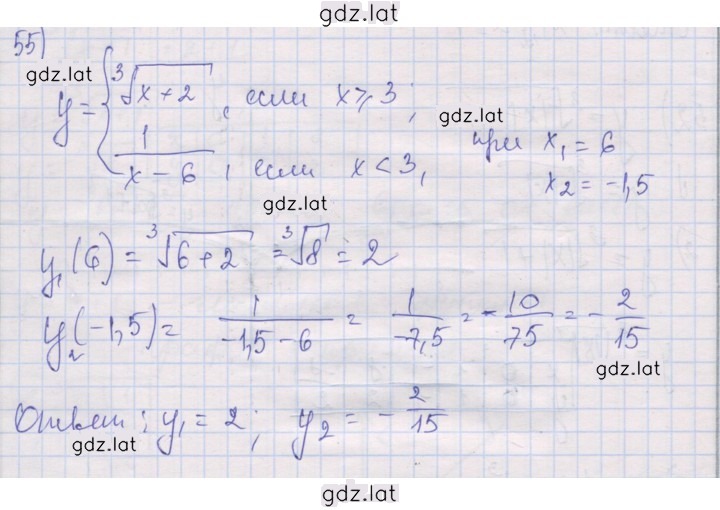 gdz.lat
55)
gdz.lat
y = { ∛(x+2), если x ⩾ 3;
gdz.lat
1/(x − 6), если x < 3, при x₁ = 6
x₂ = −1,5
gdz.lat
y₁(6) = ∛(6+2) = ∛8 = 2
y₂(−1,5) = 1/(−1,5 − 6) = 1/(−7,5) = −10/75 = −2/15
gdz.lat
Ответ: y₁ = 2; y₂ = −2/15
gdz.lat
gdz.lat